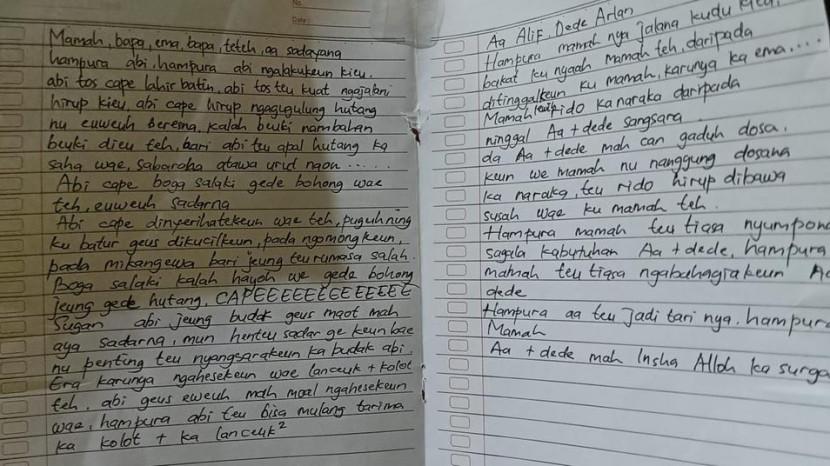 No.
Date :
Mamah, bapa, ema, bapa, teteh, aa sadayana
hampura abi, hampura abi ngalakukeun kieu.
abi tos cape lahir batin, abi tos teu kuat ngajalani
hirup kieu, abi cape hirup ngagugulung hutang
nu euweuh beresna, kalah beuki nambahan
beuki dieu teh, bari abi teu apal hutang ka
saha wae, sabaraha atawa urut naon .....
Abi cape boga salaki gede bohong wae
teh, euweuh sadarna
Abi cape dinyerihatekeun wae teh, puguh ning
ku batur geus dikucilkeun, pada ngomongkeun,
pada mikangewa bari jeung teu rumasa salah.
Boga salaki kalah hayoh we gede bohong
jeung gede hutang, CAPEEEEEEEEEEEEE
Sugan abi jeung budak geus maot mah
aya sadarna, mun henteu sadar ge keun bae
nu penting teu nyangsarakeun ka budak abi.
Era karunya ngahesekeun wae lanceuk + kolot
teh. abi geus eweuh mah moal ngahesekeun
wae, hampura abi teu bisa mulang tarima
ka kolot + ka lanceuk²
Aa Alif, Dede Arlan
Hampura mamah nya jalana kudu kieu.
bakat ku nyaah mamah teh, daripada
ditinggalkeun ku mamah, karunya ka ema....
Mamah rido ka naraka daripada
ninggal Aa + dede sangsara
da Aa + dede mah can gaduh dosa.
keun we mamah nu nanggung dosana
ka naraka, teu rido hirup dibawa
susah wae ku mamah teh.
Hampura mamah teu tiasa nyumpona
sagala kabutuhan Aa + dede, hampura
mamah teu tiasa ngabahagiakeun
dede
Hampura aa teu jadi tari nya. hampura
Mamah
Aa + dede mah Insha Alloh ka surga